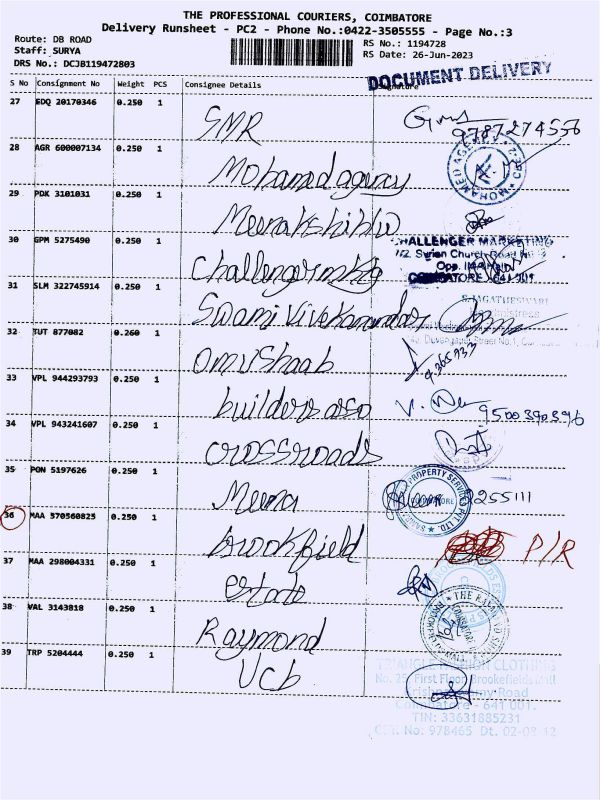 THE PROFESSIONAL COURIERS, COIMBATORE
Delivery Runsheet - PC2 - Phone No.:0422-3505555 - Page No.:3
Route: DB ROAD
Staff: SURYA
DRS No.: DCJB119472803
RS No.: 1194728
RS Date: 26-Jun-2023
DOCUMENT DELIVERY
S No Consignment No Weight PCS Consignee Details Signature
27 EDQ 20170346 0.250 1
SMR
9787274556
28 AGR 600007134 0.250 1
Mohamed agency
MOHAMED AGENCY
29 PDK 3101031 0.250 1
Meenakshi
30 GPM 5275490 0.250 1
Challenger mktg
CHALLENGER MARKETING
Syrian Church Road
Opp.
COIMBATORE 641 001
31 SLM 322745914 0.250 1
Swami Vivekanandar
S.JAGATHESWARI
32 TUT 877082 0.260 1
Omvshaab
33 VPL 944293793 0.250 1
builders asso
9500390396
34 VPL 943241607 0.250 1
crossroads
35 PON 5197626 0.250 1
Meena
PROPERTY SERVICES PVT LTD.
2255111
36 MAA 570560825 0.250 1
brookfield
P/R
37 MAA 298004331 0.250 1
estate
38 VAL 3143818 0.250 1
Raymond
THE RAYMOND SHOP
39 TRP 5204444 0.250 1
UCb
TRIANGLE FASHION CLOTHING
No. 25, First Floor, Brookefields Mall
Krishnasamy Road
Coimbatore - 641 001.
TIN: 33631885231
CST. No: 978465 Dt. 02-08-12